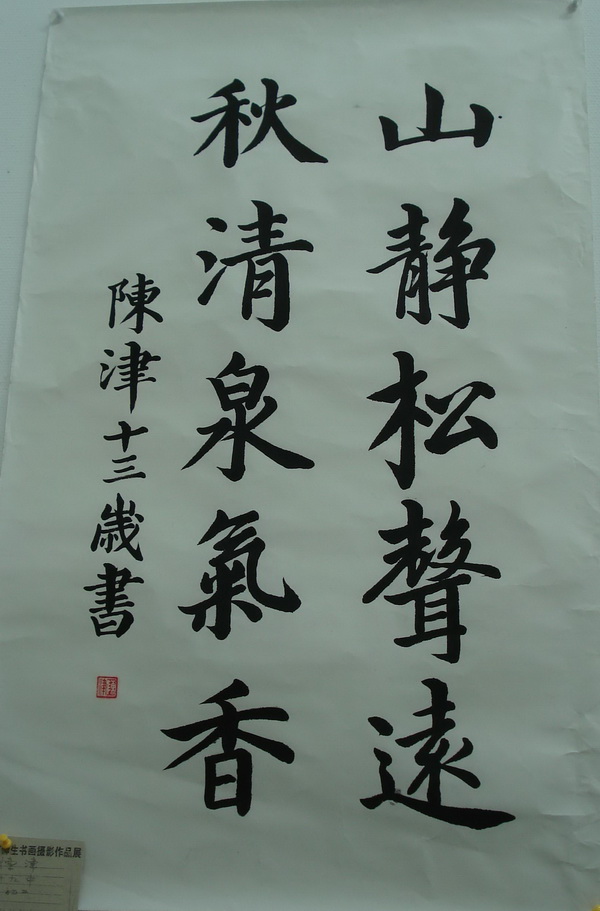 山静松聲遠
秋清泉氣香
陳津十三歲書
生书画摄影作品展